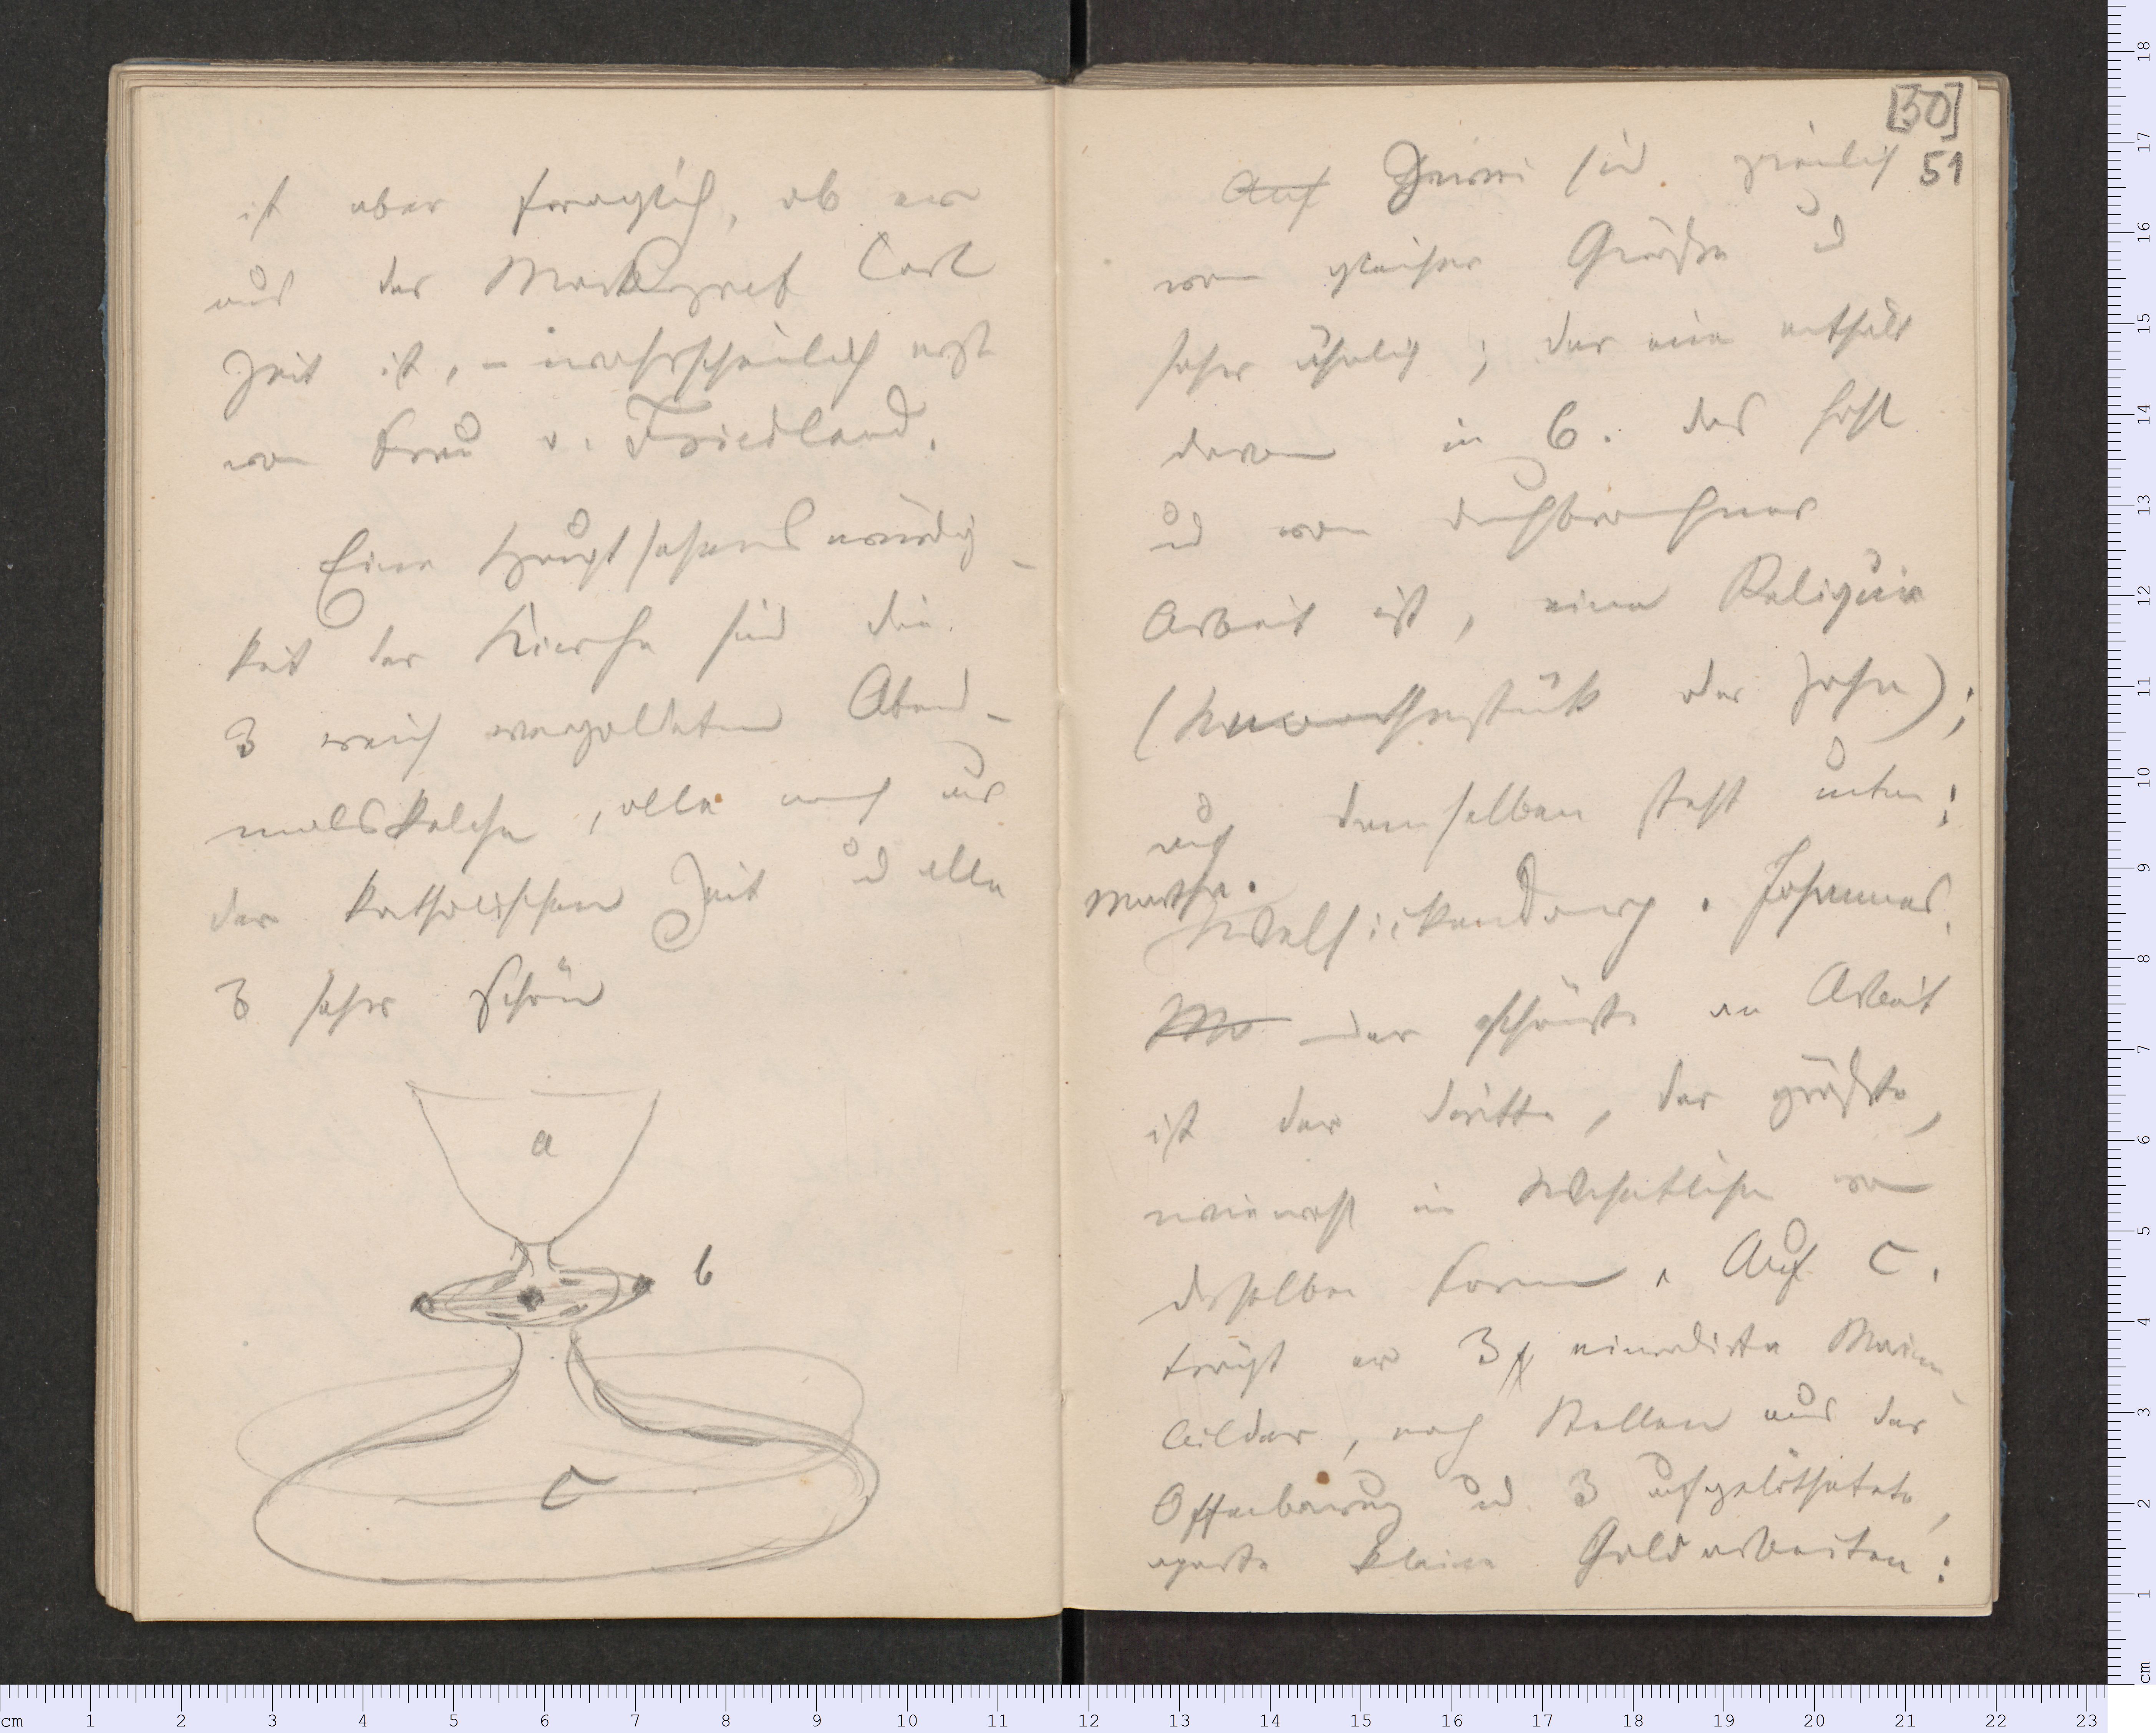 ist aber fraglich, ob er
aus der Markgraf Carl
Zeit ist, – wahrscheinlich erst
von Frau v. Friedland.
Eine Hauptsehenswürdig-
keit der Kirche sind die
3 reich vergoldeten Abend-
malskelche, alle noch aus
der katholischen Zeit und alle
3 sehr schön
a
b
c
[50]
51
Auf Zwei sind ziemlich
von gleicher Größe und
sehr ähnlich; der eine enthält
davon in b. das hohl
und von durchbrochner
Arbeit ist, eine Reliquie
(Knochenstück oder Zahn);
auf demselben steht unten:
Johannes.
der schönste an Arbeit
ist der dritte, der größte,
wiewohl im Wesentlichen von
derselben Form. Auf C.
trägt er 3 einradirte Marien-
bilder, nach Stellen aus der
Offenbarung und 3 aufgelöthete,
aparte kleine Goldarbeiten: